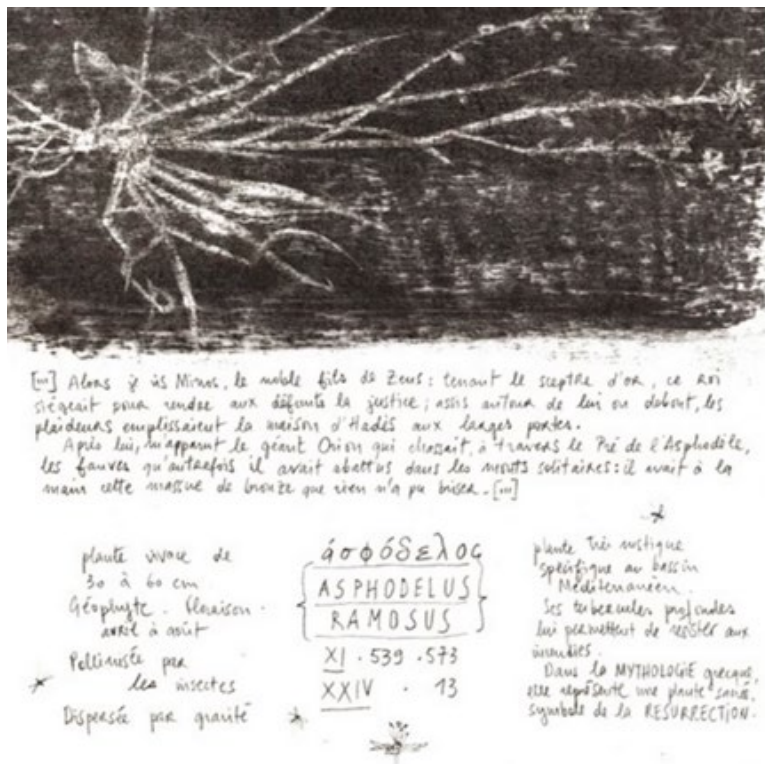 [...] Alors je vis Minos, le noble fils de Zeus : tenant le sceptre d'or, ce roi
siégeait pour rendre aux défunts la justice ; assis autour de lui ou debout, les
plaideurs emplissaient la maison d'Hadès aux larges portes.
Après lui, m'apparut le géant Orion qui chassait, à travers le Pré de l'Asphodèle,
les fauves qu'autrefois il avait abattus dans les monts solitaires : il avait à la
main cette massue de bronze que rien n'a pu briser. [...]
plante vivace de
30 à 60 cm
Géophyte. floraison.
avril à août
Pollinisée par
les insectes
Dispersée par gravité
άσφόδελος
ASPHODELUS
RAMOSUS
XI . 539 . 573
XXIV . 13
plante très rustique
spécifique au bassin
Méditerranéen.
Ses tubercules profondes
lui permettent de résister aux
incendies.
Dans la MYTHOLOGIE grecque,
elle représente une plante sacré,
symbole de la RESURRECTION.